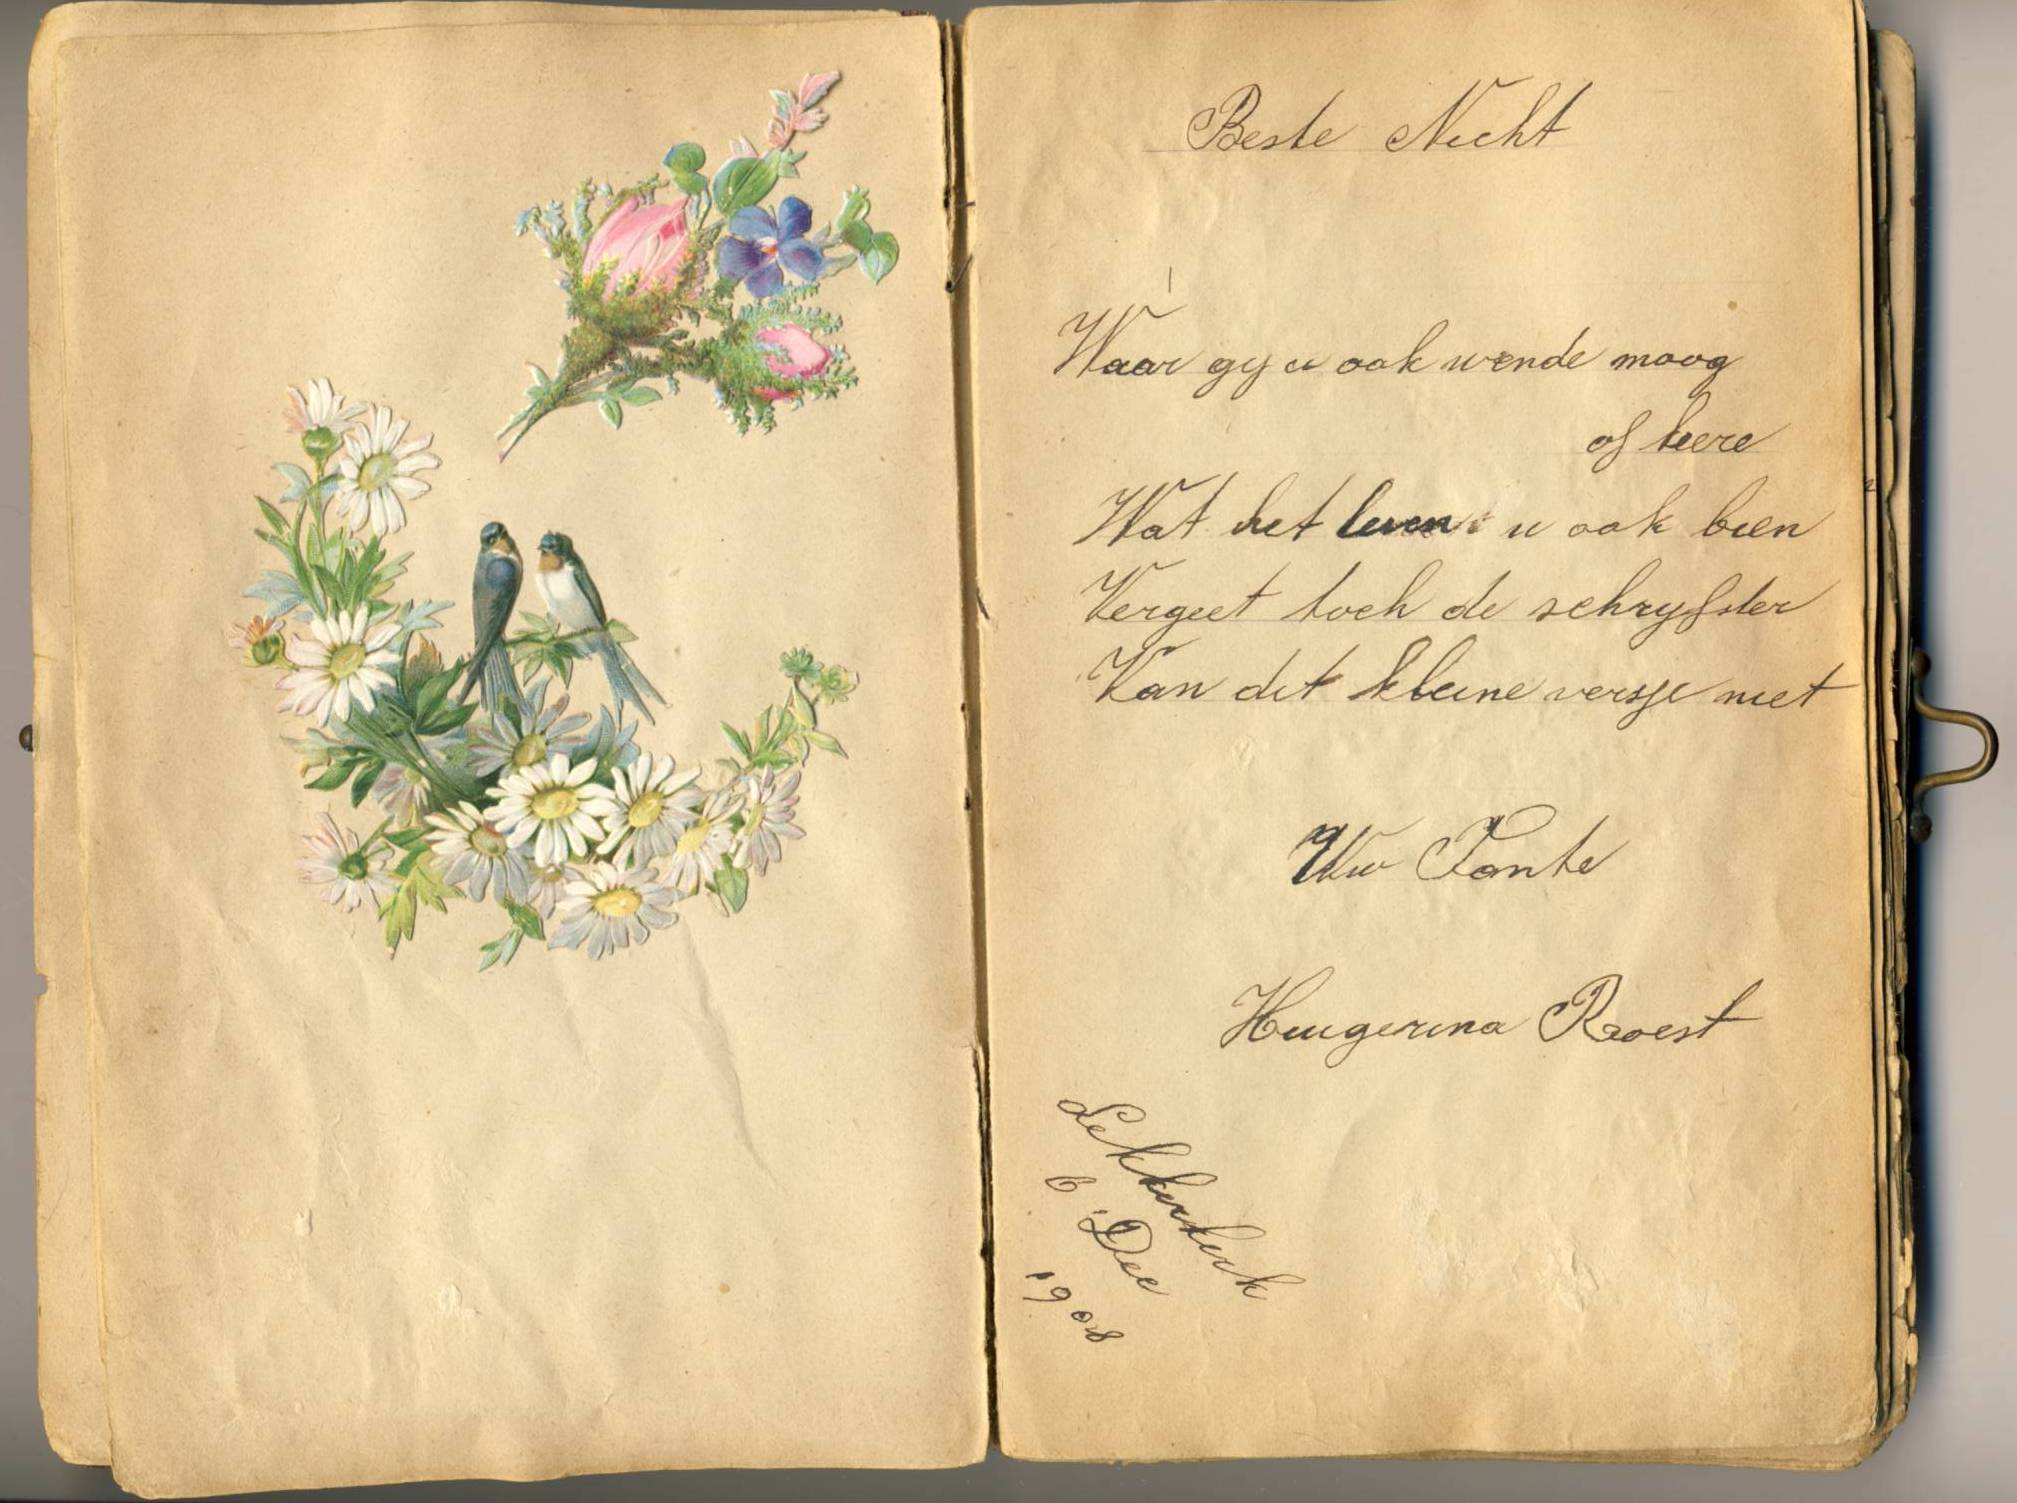 Beste Nicht
Waar gy u ook wende moog
of keere
Wat het leven u ook bien
Vergeet toch de schryfster
Van dit kleine versje niet
Uw Tante
Huigerina Roest
Lekkerkerk
6 Dec
1908